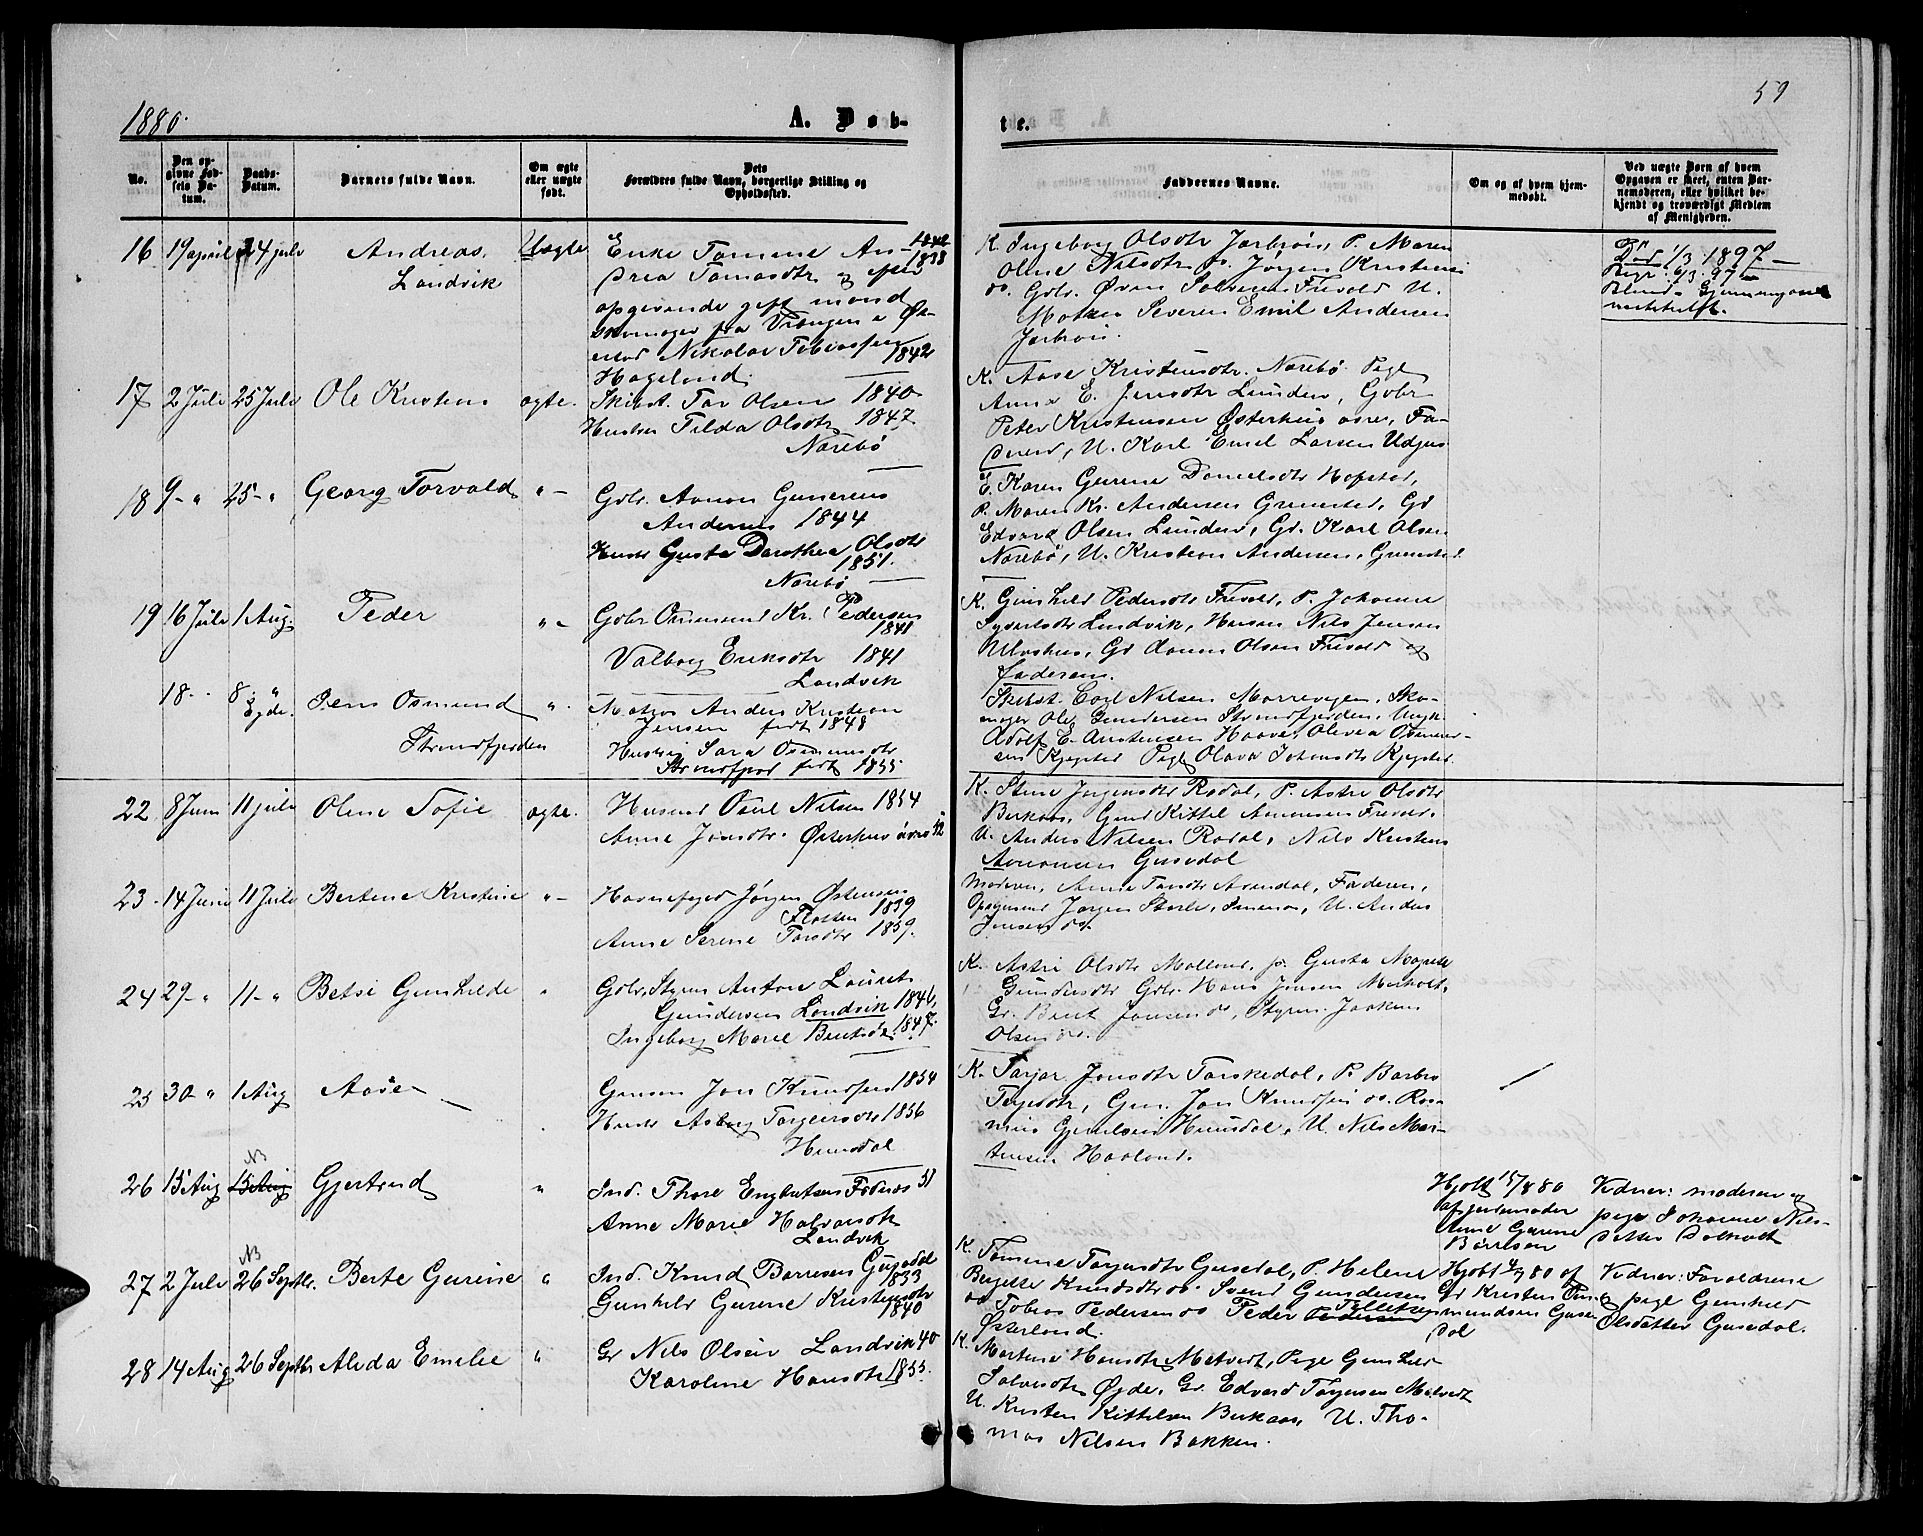 1880.
A. Døb-
te.
59
No.
Den op-
givne Fød-
sels Da-
tum.
Daabs-
Datum.
Barnets fulde Navn.
Om ægte
eller uægte
født.
Dets
Forældres fulde Navn, borgerlige Stilling og
Opholdssted.
Faddernes Navne.
Om og af hvem hjem-
medøbt.
Ved uægte Børn af hvem
Opgaven er skeet, enten Bar-
nemoderen, eller hvilket be-
kjendt og troværdigt Medlem
af Menigheden.
16 19 april 24 juli Andreas,
Landvik
Uægte
Enke Tomine An-
drea Tomasdtr og efter
1838
opgivende gift mand
Skomager fra Vrengen i Øi-
estad Nikolai Tobiassen
1842
Hageland.
K. Ingeborg Olsdtr Jortveit, P. Maren
Oline Nilsdtr ds. Jørgen Kristensen
ds. Gdbr. Sølvesen Frivold U.
Severin Emil Andersen
Død 1/3 1897
Begr. 6/3 97
Blind-
17 2 Juli 25 Juli Ole Kristens ægte.
Skibst. Tor Olsen 1840
Hustru Tilda Olsdtr 1847
Norebø
K. Aase Kristensdtr. Norebø. Pige
Anne E. Jensdtr Lunden, Gdbr
Peter Kristensen Østerhus øvre, Fa-
deren, U. Karl Emil Larsen
18 9 - " 25 - " Georg Torvald "-
Gdbr. Aanon Gunerius
Andersen 1844
Hustr Gusta Dorothea Olsdtr
1851.
Norebø
E. Karen Gurine Danielsdtr Hofstad,
P. Maren Kr. Andersen Grimstad, Gd
Edvard Olsen Lunden, Gd. Karl Olsen
Norebø, U. Kristian Andersen, Grimstad.
19 16 Juli 1 Aug. Peder "-
Gdbr Osmund Kr. Pedersen
1841
Valborg Eriksdtr 1841
Landvik
K. Gunhild Pedersdtr Frivold, P. Johanne
Landvik, Nils Jensen
Gd Olsen Frivold og
faderen.
18 - 8 - "
Egde.
Jens Osmund
Strandfjorden
"
Matros Anders Kristian
Jensen født 1848
Hustru Sara Osmundsdtr
født 1855.
Skibst. Carl Nilsen Morrevigen, Sko-
mager Ole Gundersen Strandfjorden, Ungk
Adolf E. Anstensen Haave, Olivia Osmun-
sen Pige Olava Johansdtr
22 8 Juni 11 juli Oline Tofie ægte.
Husmd Osul Nilsen 1854
Anne Jonsdtr. Østerhus øvre 52
K. Stine Jørgensdtr Rodal, P. Astri Olsdtr
Birkaas, Gmd Kittel Frivold.
U. Anders Nilsen Rodal, Nils Kristens
Gusedal
23. 14 Juni 11 Juli Bertine Kristine "-
Havnefoged Jørgen Østensen
1839
Anne Serine Torsdtr 1839.
Moderen, Anne Torsdtr Arendal, Faderen,
Jørgen U. Anders
Jensen ds.
24 29 - " 11 - " Betsi Gunhilde "
Gdbr, Styrm Anton Laurits
Gundersen Landvik 1846,
Ingeborg Marie Bentsdtr 1847.
K. Astri Olsdtr Molland, p. Gusta Magrete
Gundersdtr Gdbr. Hans Jensen
Gr. Bent Jonsen ds, Styrm. Joakim
Olsen ds.
25 30 " 1 Aug Aase -
Gmson Jon Knudsen 1854
Hustr Asborg Torgersdtr 1856
Hunsdal
K. Tarjer Jonsdtr Torskedal, P. Barbro
Terjesdtr, Gm. Jon Knudsen ds. Ras-
mus Hunsdal, U. Nils Mar-
tinsen Haaland.
26 15 Aug NB 15 Aug Gjertrud "
Ind. Thore Fodnes 51
Anne Marie Halvorsdtr
Landvik
Hjdbt 15/8 80
af jordemoder
Anne Gurine
Børresen
Vidner: moderen og
pige Johanne Nils-
datter Dolholt
27 2 Juli NB 26 Septbr. Berte Gurine "
Ind. Knud Børresen Gusedal
1833
Gunhild Gurine Kristensdtr
1840
K.
Tomine Torjusdtr Gusedal, P. Helene
Birgitte Knudsdtr ds. Svend Gundersen
ds Tobias Pedersen ds Peder Pedersen Tellefsen
Østerland.
Hjdbt 80 af
Gr Kristen Om-
mundsen Guse-
dal
Vidner: Foraldrene
og pige Gunhild
Olsdatter Gusedal.
28 14 Aug 26 Septbr Alida Emilie "
Gr Nils Olsen Landvik 40
Karoline Hansdtr 1855.
K. Martine Hansdtr Molvedt, Pige Gunhild
Salvesdtr Øgde, Gr. Edvard Torjusen Molvedt
U. Kristen Kittelsen Birkaas, U. Tho-
mas Nilsen Bakken.